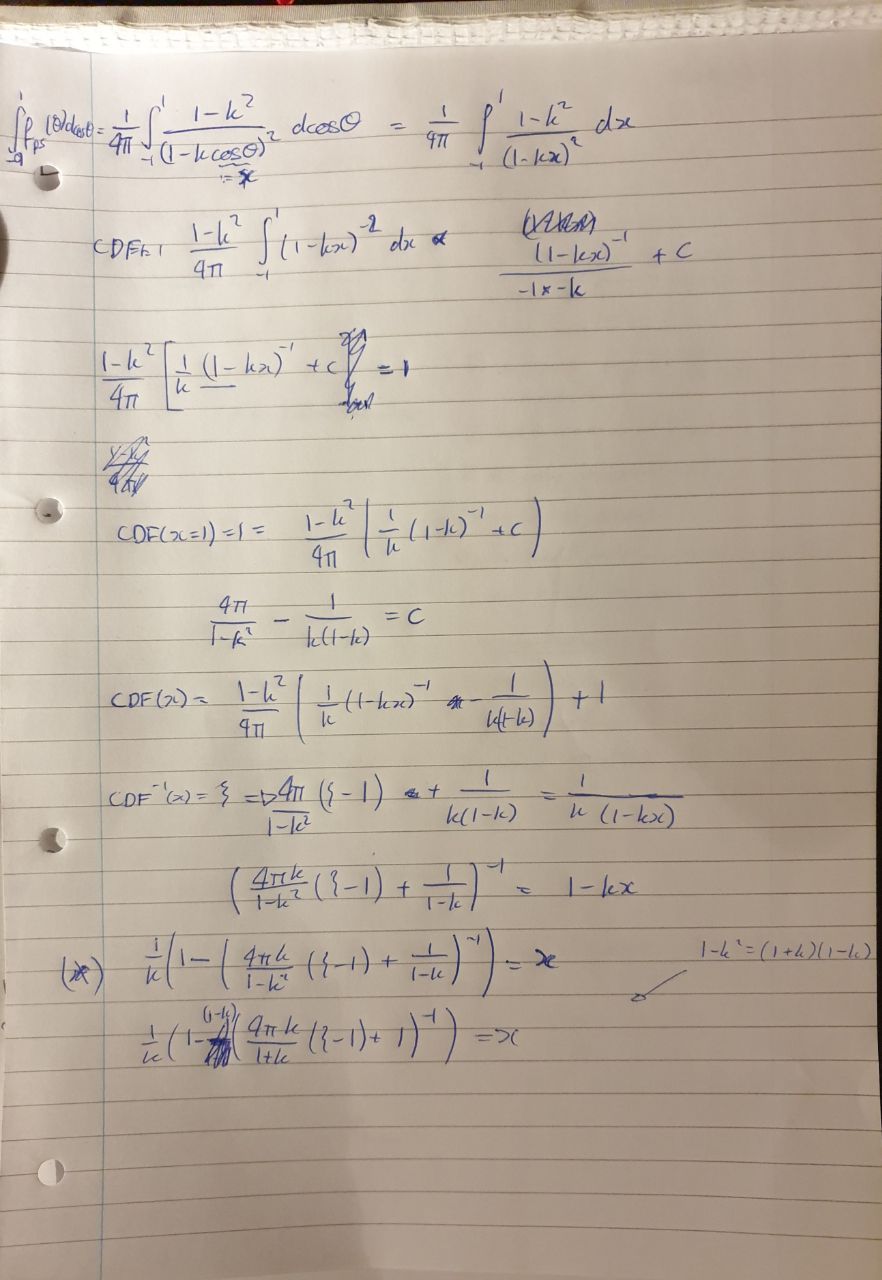 ∫_{-1}^{1} f_{ps}(θ)dcosθ = 1/4π ∫_{-1}^{1} (1-k²)/(1-k cosθ)² dcosθ = 1/4π ∫_{-1}^{1} (1-k²)/(1-kx)² dx
:= x
(1-k²)/4π ∫_{-1}^{1} (1-kx)^{-2} dx (1-kx)^{-1}/(-1*-k) + C
(1-k²)/4π [1/k (1-kx)^{-1} + C] = 1
CDF(x=1) = 1 = (1-k²)/4π (1/k (1-k)^{-1} + C)
4π/(1-k²) - 1/(k(1-k)) = C
CDF(x) = (1-k²)/4π (1/k (1-kx)^{-1} - 1/(k(1-k))) + 1
CDF^{-1}(x) = ξ => 4π/(1-k²) (ξ-1) + 1/(k(1-k)) = 1/(k (1-kx))
(4πk/(1-k²) (ξ-1) + 1/(1-k))^{-1} = 1-kx
(*) 1/k (1-(4πk/(1-k²) (ξ-1) + 1/(1-k))^{-1}) = x
1-k² = (1+k)(1-k)
1/k (1-(1-k)(4πk/(1+k) (ξ-1) + 1)^{-1}) = x